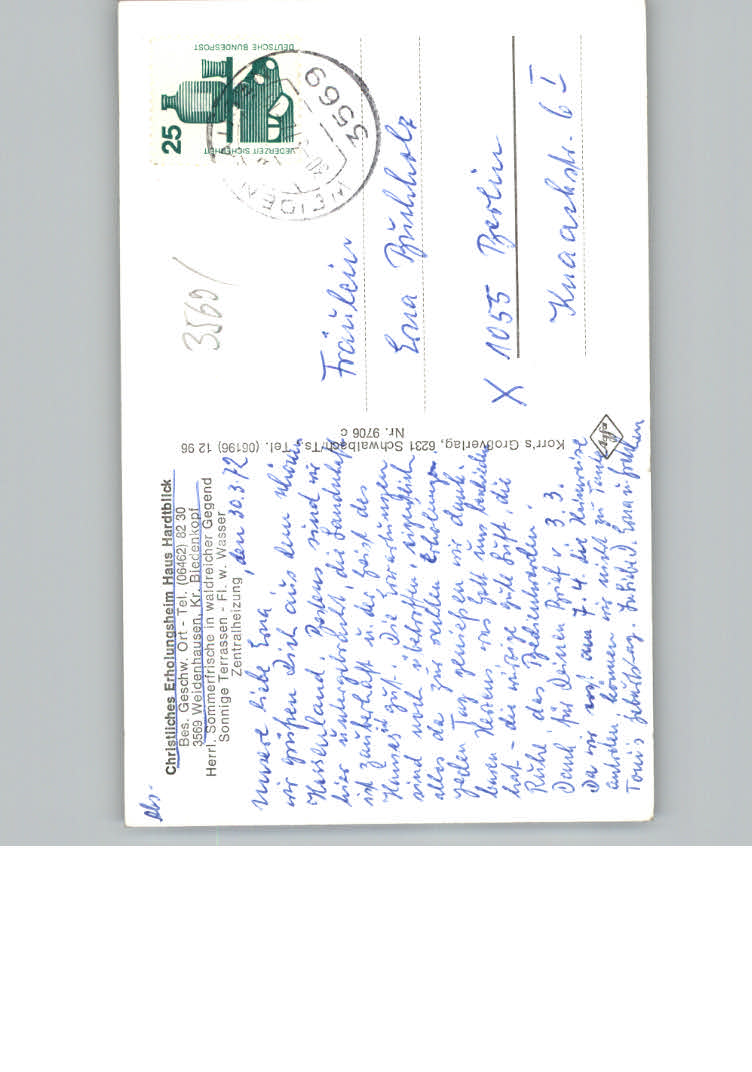 Abs.
Christliches Erholungsheim Haus Hardtblick
Bes. Geschw. Ort - Tel. (06462) 82 30
3569 Weidenhausen, Kr. Biedenkopf
Herrl. Sommerfrische in waldreicher Gegend
Sonnige Terrassen - Fl. w. Wasser
Zentralheizung
, den 30.3.72
Unsere liebe Erna!
wir grüßen Dich aus dem schönen
Hessenland. Bestens sind wir
hier untergebracht, die Landschaft
ist zauberhaft u. der Geist des
Hauses ist gut. Die Erwartungen
sind noch übertroffen, eigentlich
alles da zur rechten Erholung.
Jeden Tag genießen wir dank-
baren Herzens was Gott uns
hat - die würzige gute Luft, die
Ruhe des
Dank für Deinen Brief v. 3.3.
Da wir erst am 7.4. die Heimreise
antreten, können wir nicht zu
Toni's Geburtstag. In Liebe D. Erna u.
Korr's Großverlag, 6231 Schwalbach/Ts., Tel. (06196) 12 96
Nr. 9706 c
Agfa
3569/
25
DEUTSCHE BUNDESPOST
JEDERZEIT SICHERHEIT
3569
WEIDEN
Fräulein
Erna Buchholz
X 1055 Berlin
Knaackstr. 6 I